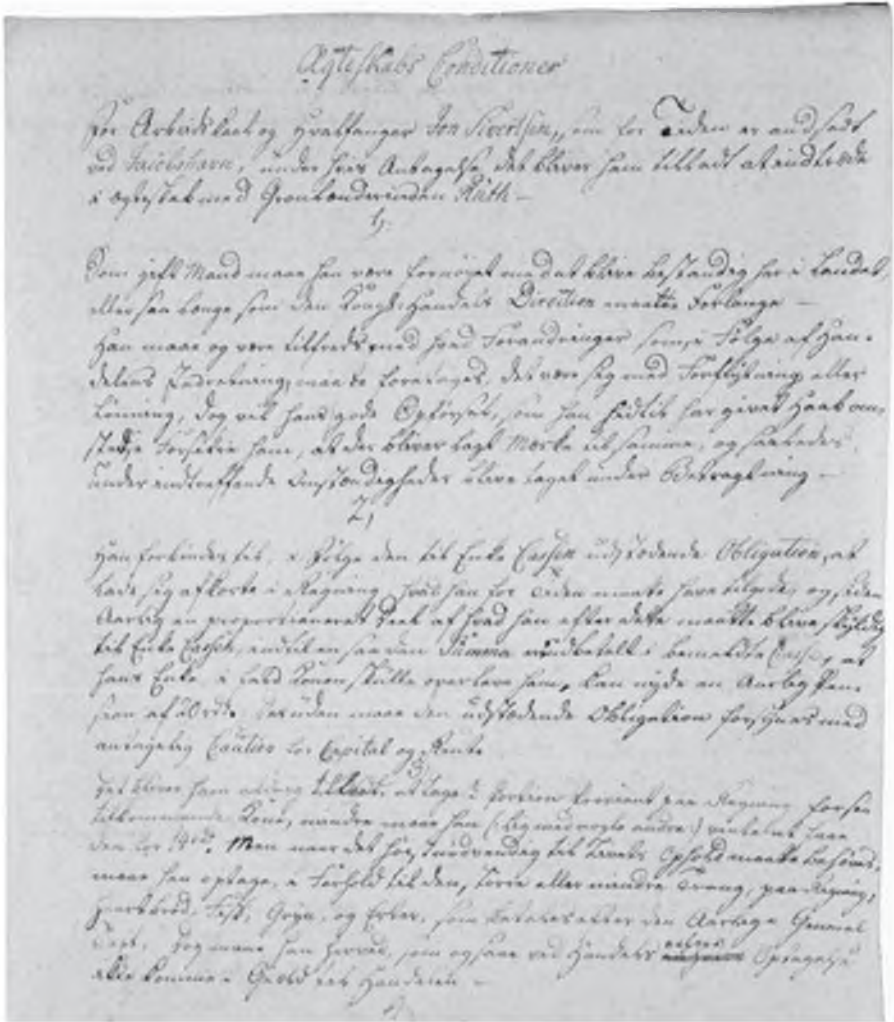 Ægteskabs Conditioner
For Arbeidskarl og Hvalfanger Jon Sivertsen, som for Tiden er andsadt
ved Jacobshavn, under hvis Antagelse det bliver ham tilladt at indtræde
i Ægteskab med Grønlænderinden Ruth —
1)
Som gift Mand maae han være fornøyet med at blive bestandig her i Landet,
eller saa længe som den Kongl: Handels Direction maatte forlange —
Han maae og være tilfreds med hvad Forandringer som, i Følge af Han-
delens Indretning, maatte foretages, det være sig med Forflytning eller
Lønning, dog vil hans gode Opførsel, som han hidtil har givet Haab om,
stedse forsikre ham, at der bliver lagt Mærke til samme, og saaledes,
under indtreffende Omstændigheder blive taget under Betragtning —
2)
Han forbindes til, i Følge den til Enke Cassen udstædende Obligation, at
lade sig afkorte i Regning hvad han for Tiden maatte have tilgode, og siden
Aarlig en proportioneret Deel af hvad han efter dette maatte blive skyldig
til Enke Cassen, indtil en saadan Summa er indbetalt i bemeldte Casse, at
hans Enke, i fald Konen skulle overleve ham, kan nyde en Aarlig Pen-
sion af 20 rdr. Desuden maae den udstædende Obligation forsynes med
antagelig Caution for Capital og Rente
3)
Det bliver ham tilladt, at tage ½ Portion Proviant paa Regning for sin
tilkommende Kone, mindre maae han
den for Men naar det høist nødvendig til Livets Ophold maatte behøves,
maae han optage, i Forhold til den, større eller mindre Trang, paa Regning,
hvedbrød, Gryn, og Erter, som betales efter den Aarlige General
Taxt. Dog maae han herved, som ogsaa ved Handels Optagelse
ikke komme i Gield til Handelen —